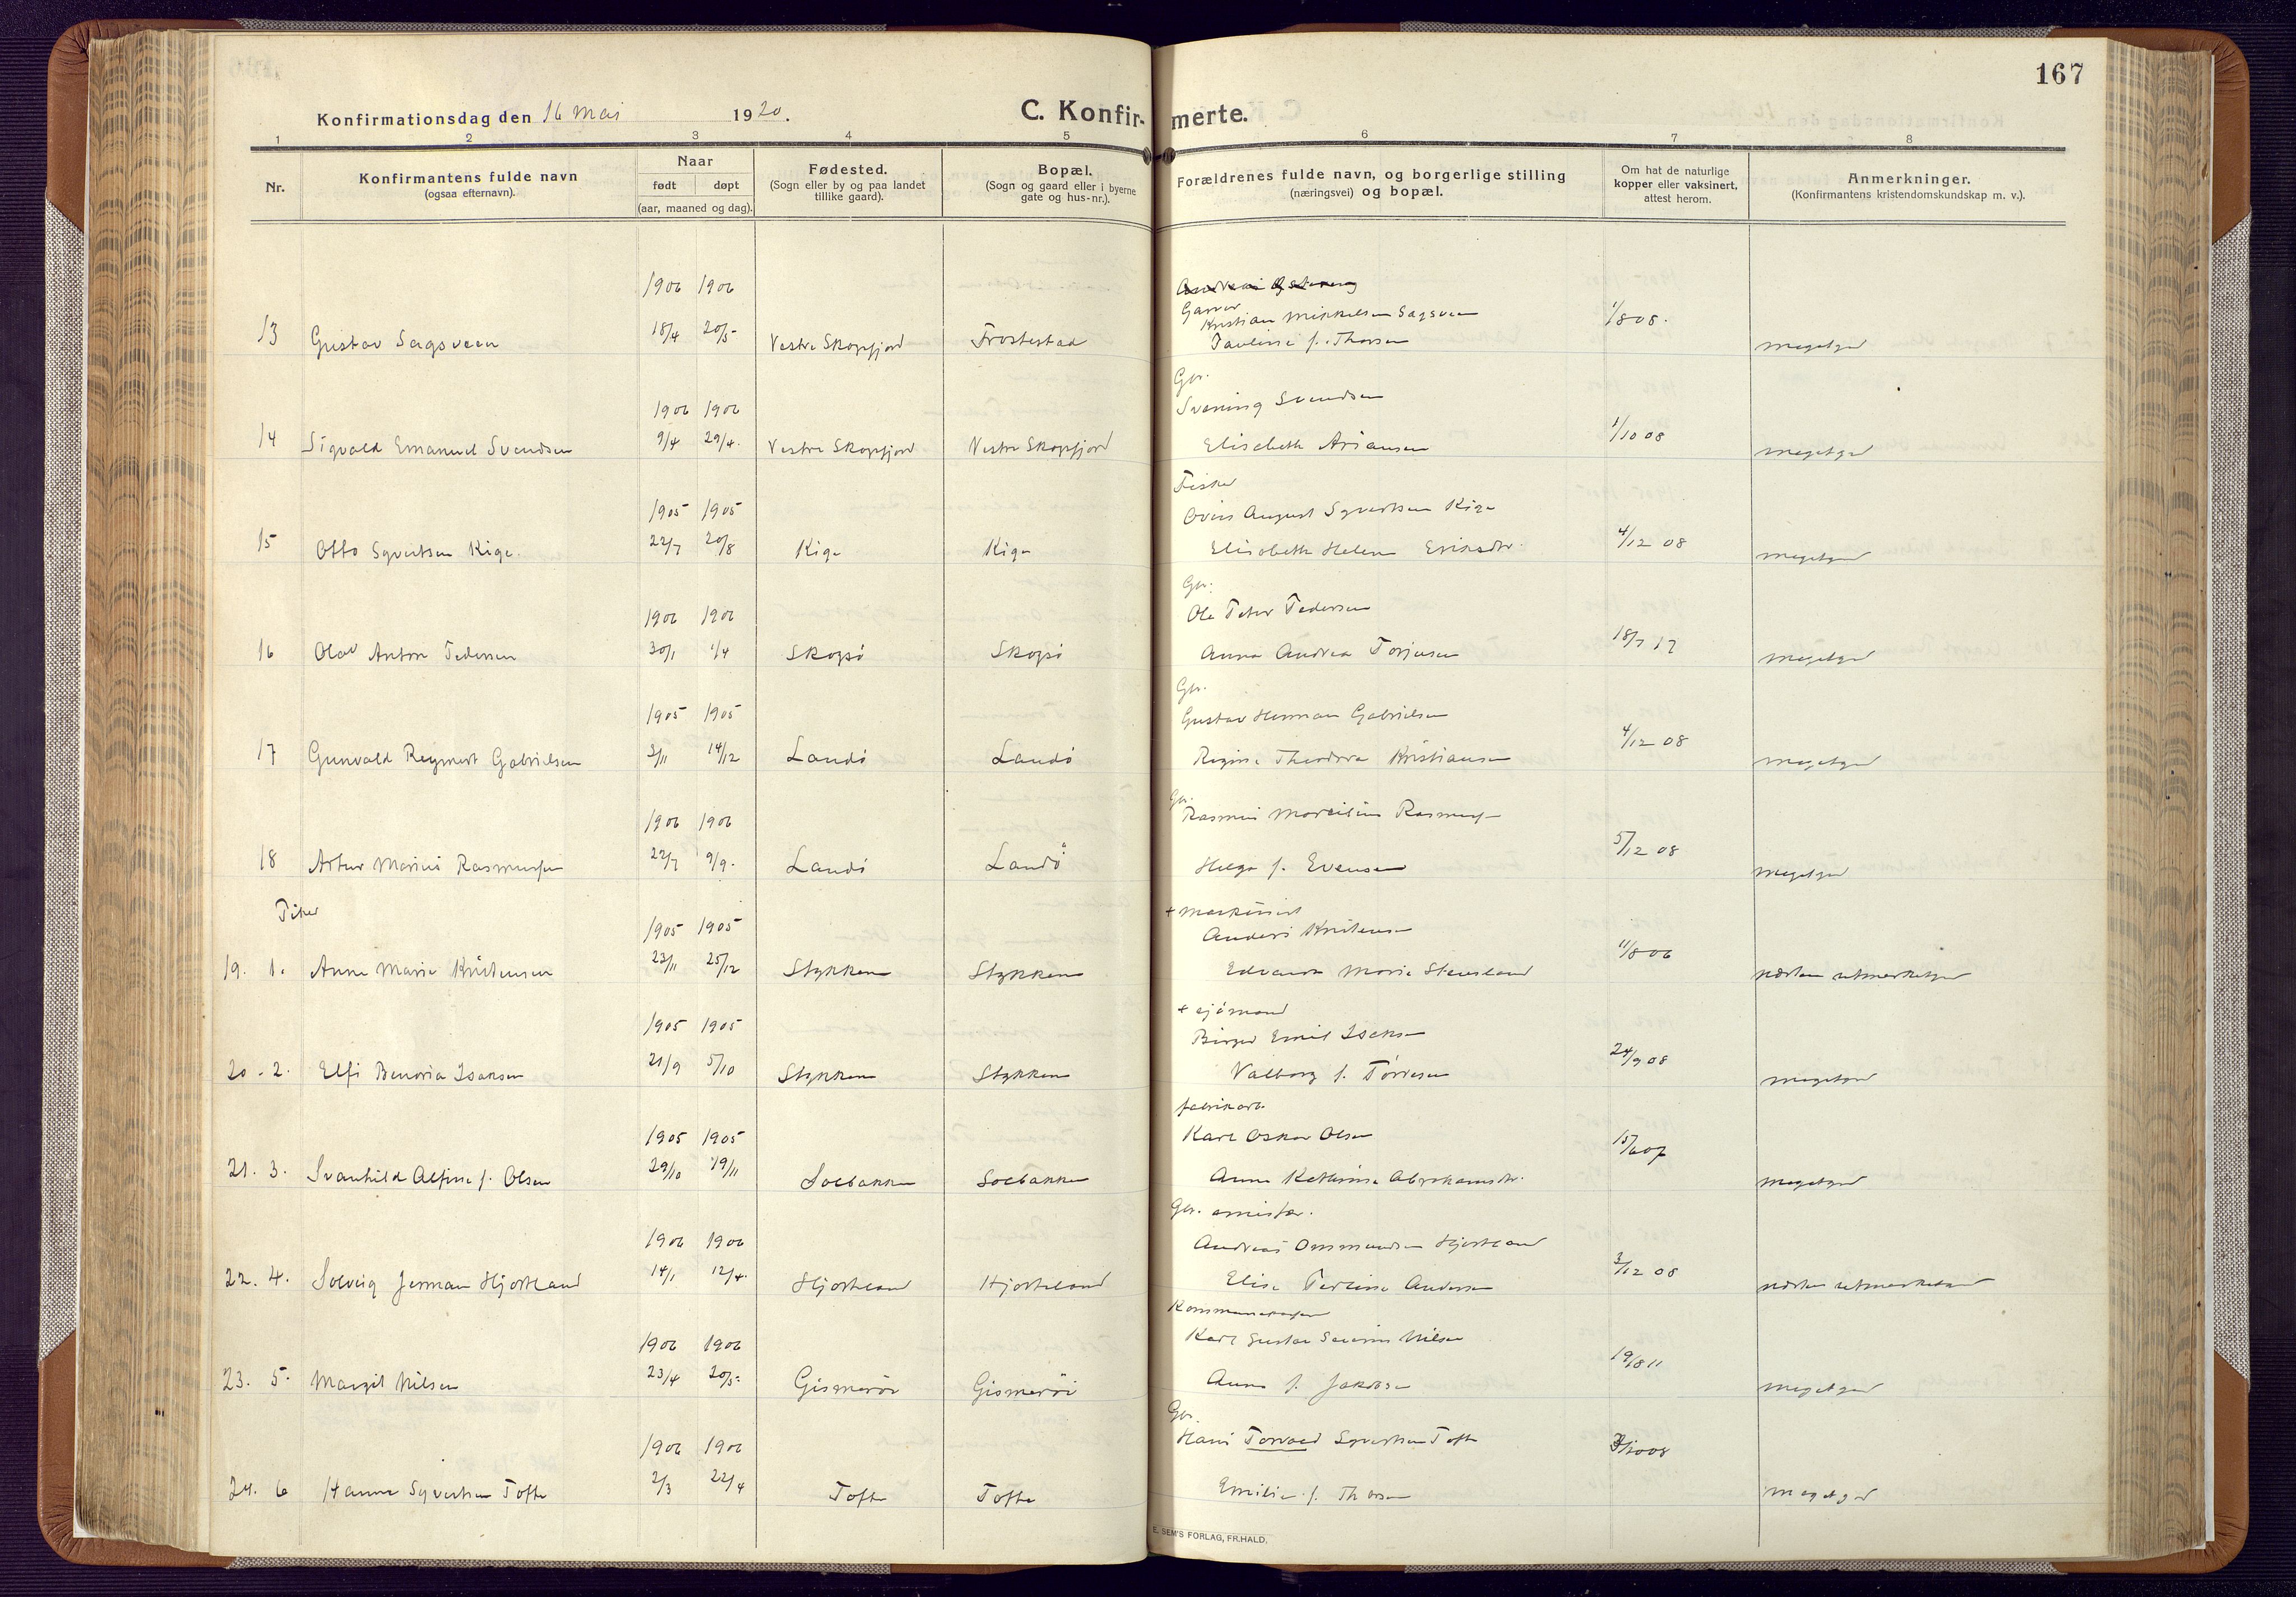 167
Konfirmationsdag den 16 Mai 1920.
C. Konfirmerte.
1 2 3 4 5 6 7 8
Nr.
Konfirmantens fulde navn
(ogsaa efternavn).
Naar
født døpt
(aar, maaned og dag).
Fødested.
(Sogn eller by og paa landet
tillike gaard).
Bopæl.
(Sogn og gaard eller i byerne
gate og hus-nr.).
Forældrenes fulde navn, og borgerlige stilling
(næringsvei) og bopæl.
Om hat de naturlige
kopper eller vaksinert,
attest herom.
Anmerkninger.
(Konfirmantens kristendomskundskap m. v.).
1906 1906
Garver
Kristian Mikkelsen Sagsveen
13 Gustav Sagsveen 18/4 20/5 Vestre Skogsfjord Frostestad 1/8 08.
Pauline f. Thorsen meget god
Gbr.
1906 1906 Svening Svendsen
14 Sigvald Emanuel Svendsen 9/4 29/4. Vestre Skogsfjord Vestre Skogsfjord Elisabeth Ariansen 1/10 08 meget god
Fisker
1905 1905 August Syvertsen Kige
15 Otto Syvertsen Kige. 22/7 20/8 Kige Kige Elisabeth Helene Eriksdtr. 4/12 08 meget god
Gbr.
1906 1906 Ole Peter Pedersen
16 Olav Anton Pedersen 30/1 1/4 Skogsø Skogsø Anna Andrea Torjusen 18/7 17 meget god
Gbr.
1905 1905 Gustav Herman Gabrielsen
17 Gunvald Reymert Gabrielsen 3/11 14/12 Landø Landø Regine Theodora Kristiansen 4/12 08 meget god
Gbr.
1906 1906 Rasmus Rasmussen
18 Artur Marius Rasmussen 22/7 9/9. Landø Landø Helga f. Evensen 5/12 08 meget god
Piker
+ maskinist
1905 1905 Anders Kristensen
19. 1. Anne Marie Kristensen 23/11 25/12 Stykken Stykken Marie Stensland 11/8 06 næsten utmerket god
+ sjømand
1905 1905 Birger Emil Isaksen
20. 2. Elfi Isaksen 21/9 5/10 Stykken Stykken Valborg f. Tørresen 24/9 08 meget god
fabrikarb.
1905 1905 Karl Oskar Olsen
21. 3. Svanhild Alfine f. Olsen 29/10 19/11 Solbakken Solbakken Anne Kathrine Abrahamsdtr. 15/6 07 meget god
Gbr.
1906 1906 Andreas Ommundsen Hjortland
22. 4. Solveig Jerman Hjortland 14/1 12/4. Hjorteland Hjorteland Elise Andersen 3/12 08 næsten utmerket god
1906 1906 Karl Gustav Severin Nilsen
23. 5. Margit Nilsen 23/4 20/5. Gismerøi Gismerøi Anna f. Jakobsen 19/8 11 meget god
Gbr.
1906 1906 Hans Torvald Syvertsen Tofte
24. 6 Hanna Syvertsen Tofte 2/3 22/4 Tofte Tofte Emilie f. Thorsen meget god
E. SEM'S FORLAG, FR.HALD.